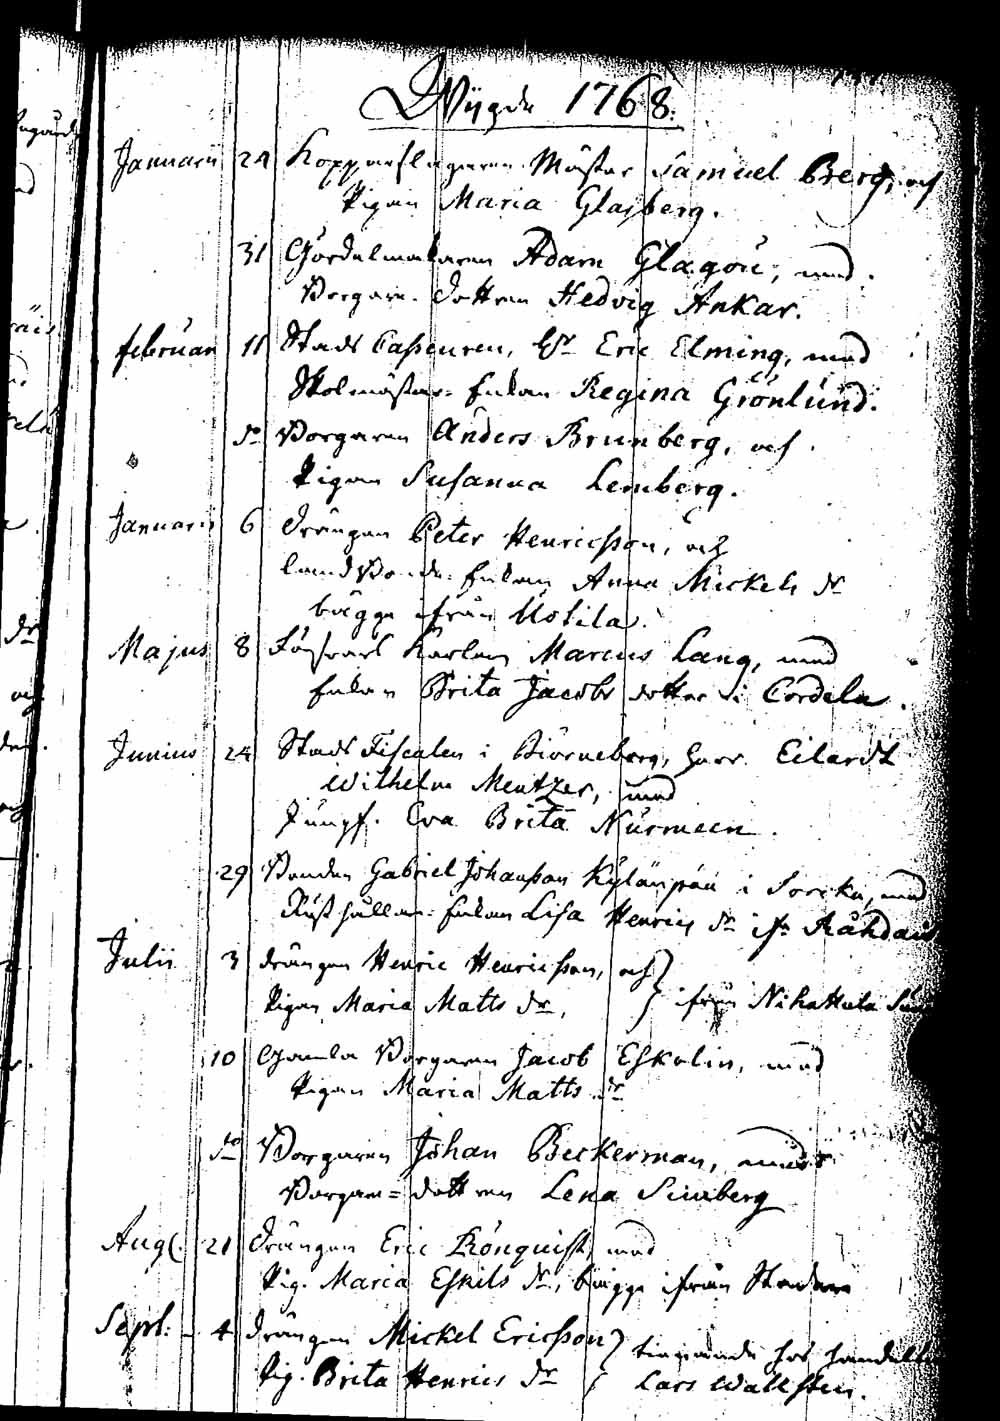 Wijgde 1768.
Januarii 24 Kopparslagaren Mäster Samuel Berg, och
Pigan Maria Glasberg.
31 Gördelmakaren Adam Glagou, med
Borgare-dottren Hedvig Ankar.
februar 11 Stads Casseuren, Hr Eric Elming, med
Skolmästar-Enkan Regina Grönlund.
do Borgaren Anders Brunberg, och
Pigan Susanna Lemberg.
Januarii 6 drängen Peter Henricsson, och
landBonde-Enkan Anna Mickels dr
bägge ifrån Ulvila.
Majus 8 Karlen Marcus Lang, med
Enkan Brita Jacobs dotter i Cordela.
Junius 24 Stads Fiscalen i Biörneborg, Herr Eilardt
Wilhelm Mentzer, med
Jungf. Eva Brita Nurmeen.
29 Bonden Gabriel Johansson Kylänpää i, med
Rusthållar-Enkan Lisa Henrics dr
Julii 3 drängen Henric Henricsson, och
Pigan Maria Matts dr, ifrån Nihattula
10 Gamla Borgaren Jacob Eskolin, med
Pigan Maria Matts dr
do Borgaren Johan Beckerman, med
Borgare=dottren Lena Simberg
Aug. 21 Drängen Eric Rönquist, med
Pig. Maria Eskils dr, bägge ifrån Staden
Sept: 4 drängen Mickel Ericsson tienande hos
Pig. Brita Henrics dr Lars Wallsten.